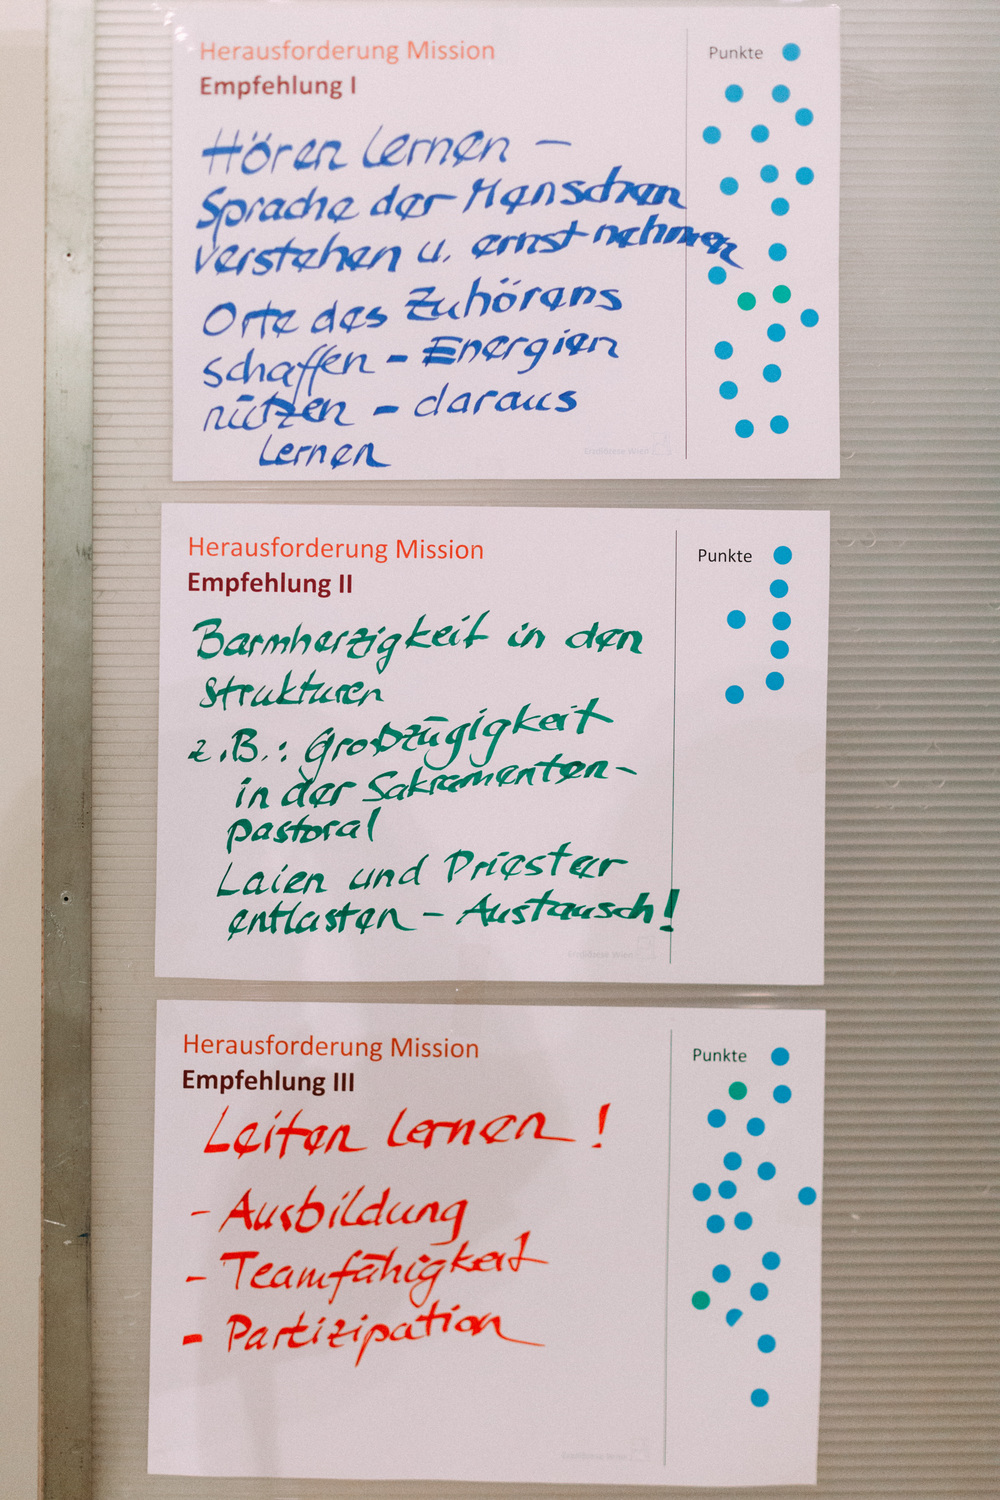 Herausforderung Mission
Empfehlung I
Punkte
Hören Lernen –
Sprache der Menschen
verstehen u. ernst nehmen
Orte des Zuhörens
schaffen – Energien
nützen – daraus
Lernen
Erzdiözese Wien
Herausforderung Mission
Empfehlung II
Punkte
Barmherzigkeit in den
Strukturen
z.B.: Großzügigkeit
in der Sakramenten-
pastoral
Laien und Priester
entlasten – Austausch!
Erzdiözese Wien
Herausforderung Mission
Empfehlung III
Punkte
Leiten lernen!
- Ausbildung
- Teamfähigkeit
- Partizipation
Erzdiözese Wien